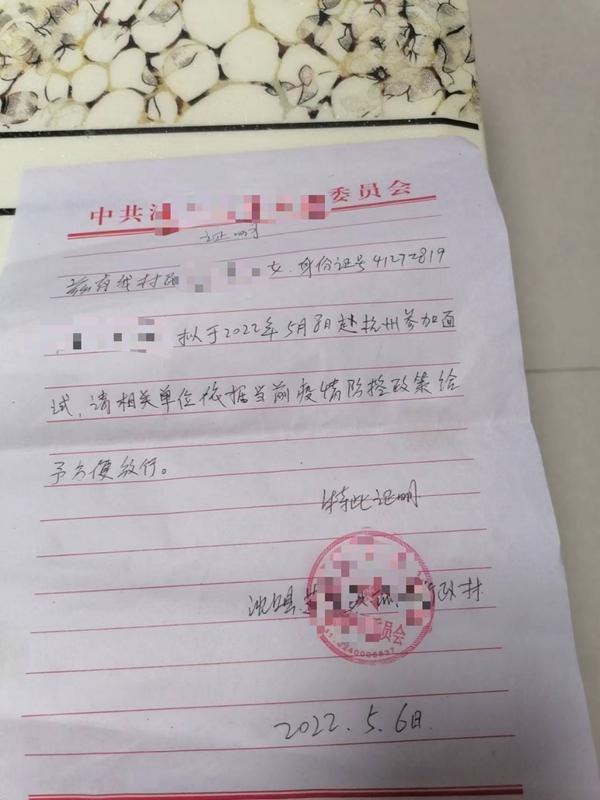 中共沈 委员会
证明
兹有我村民 女.身份证号41272819
拟于2022年5月8日赴杭州参加面
试,请相关单位依据当前疫情防控政策给
予方便放行。
特此证明
沈丘县 行政村
员会
2022.5.6日